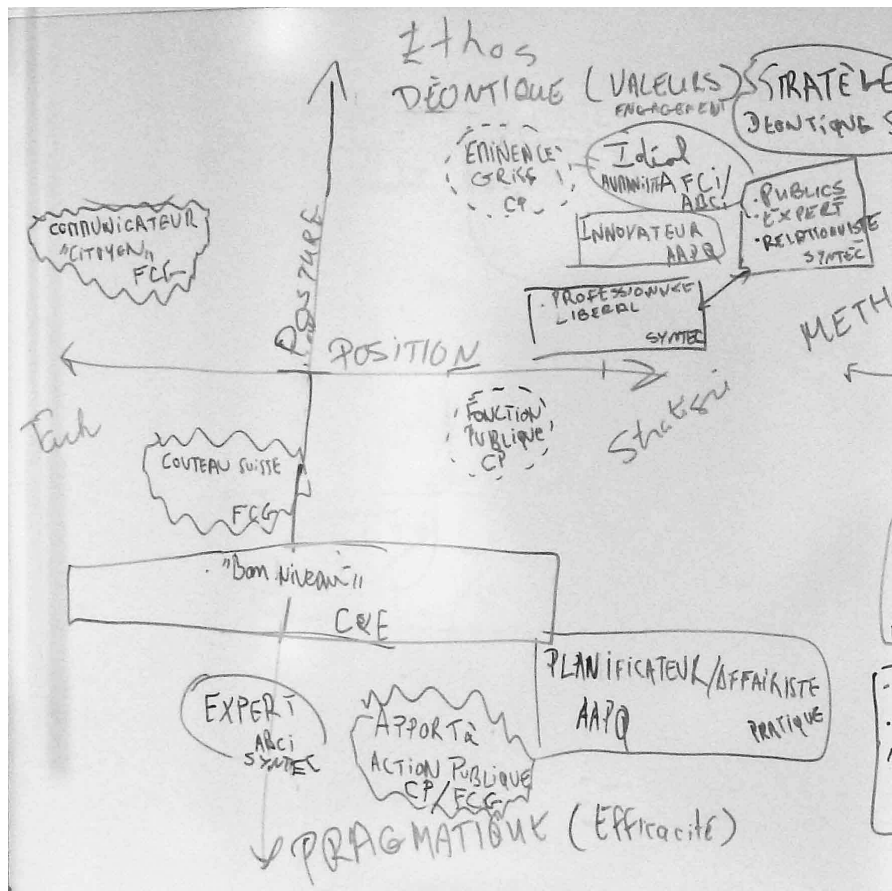 Ethos
DÉONTIQUE (VALEURS)
ENGAGEMENT
STRATÈGE
DÉONTIQUE
EMINENCE
GRISE
CP
Idéal
HUMANISTE AFCI/
ABCi
• PUBLICS
• EXPERT
• RELATIONNISTE
SYNTEC
INNOVATEUR
AAPQ
• PROFESSIONNEL
LIBERAL
SYNTEC
COMMUNICATEUR
"CITOYEN"
FCG
POSTURE
POSITION
METH
Tech
Stratégie
FONCTION
PUBLIQUE
CP
COUTEAU SUISSE
FCG
"Bon niveau"
C&E
PLANIFICATEUR/AFFAIRISTE
AAPQ
PRATIQUE
EXPERT
ABCi
SYNTEC
APPORT à
ACTION PUBLIQUE
CP/FCG
PRAGMATIQUE (Efficacité)